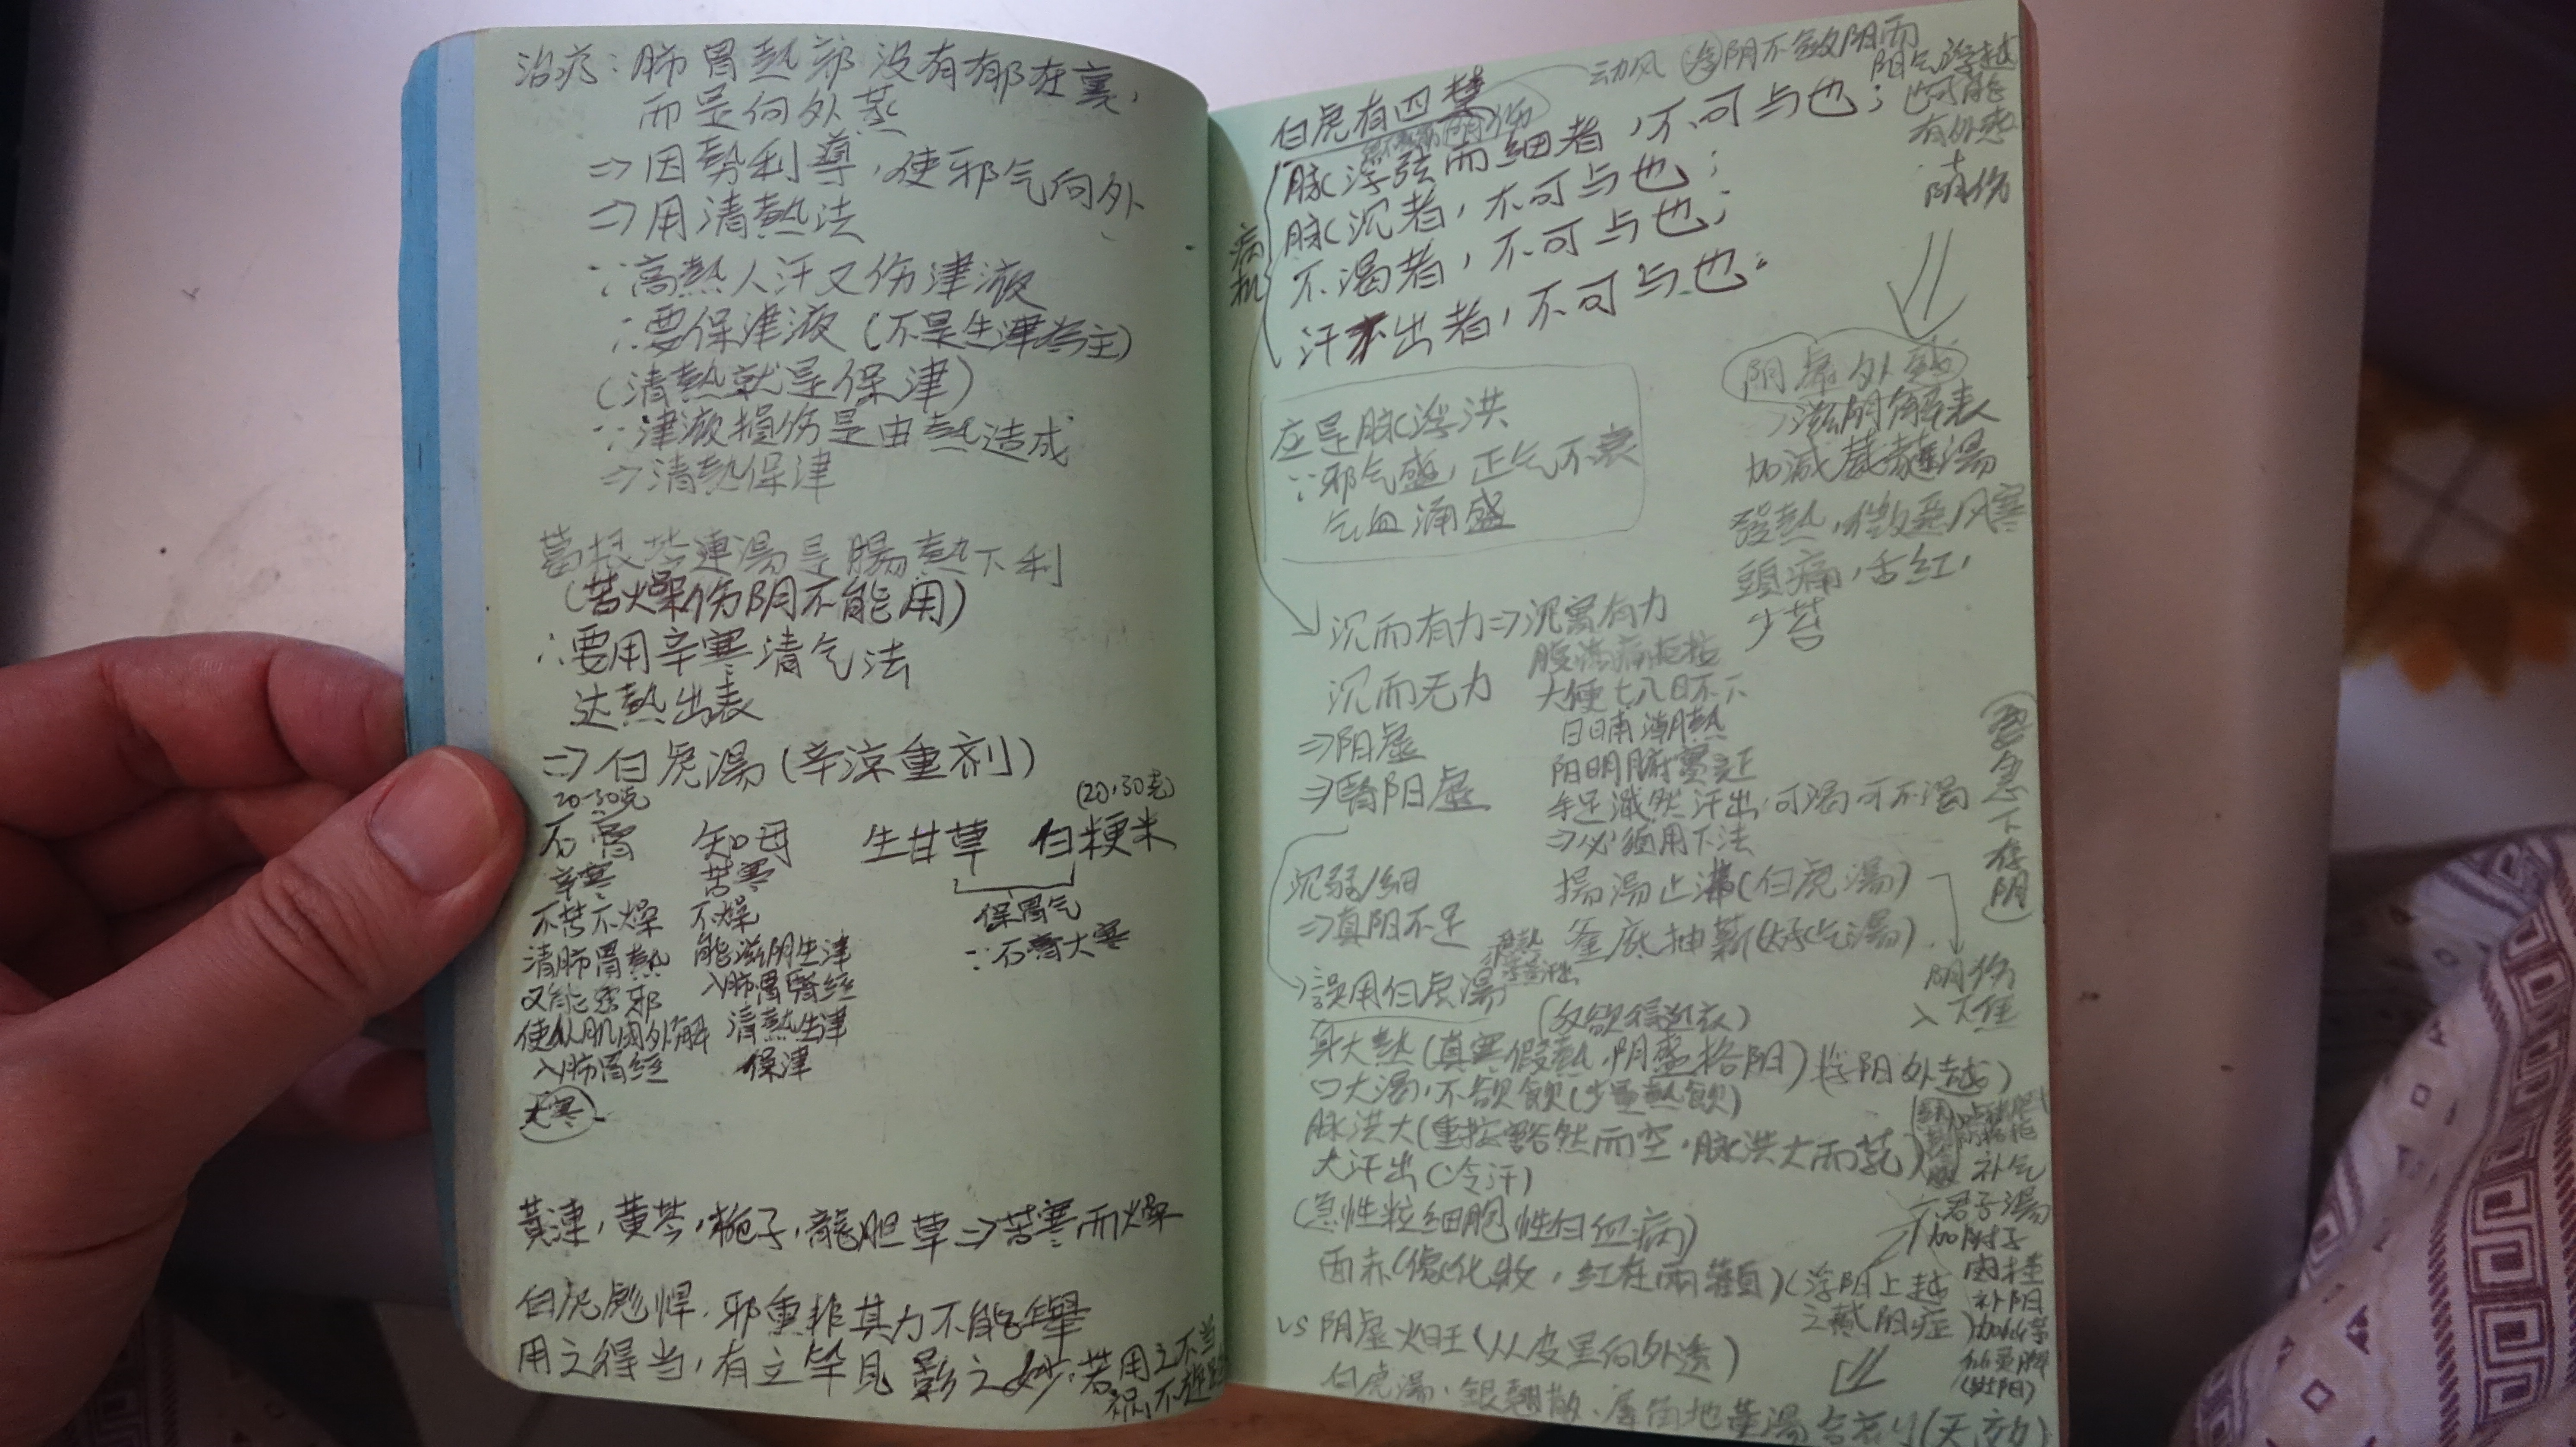 治疗：肺胃熱邪没有郁在裏，
而是向外蒸
⇒因势利導，使邪气向外
⇒用清熱法
∵高熱人汗又伤津液
∴要保津液（不是生津为主）
（清熱就是保津）
∵津液損伤是由熱造成
⇒清熱保津
葛根芩連湯是腸熱下利
（苦燥伤阴不能用）
∴要用辛寒清气法
达熱出表
⇒白虎湯（辛凉重剂）
20-30克
(20,30克)
石膏 知母 生甘草 白粳米
辛寒 苦寒
不苦不燥 不燥
保胃气
∵石膏大寒
清肺胃熱 能滋阴生津
又能透邪 入肺胃腎經
使从肌肉外解 清熱生津
入肺胃經 保津
大寒
黃連，黃芩，栀子，龍胆草⇒苦寒而燥
白虎彪悍，邪重非其力不能舉
用之得当，有立竿見影之妙，若用之不当
祸不旋踵
动风
阳气浮越
也可能
有外感
+
阴伤
白虎有四禁
病机
脉浮弦而细者，不可与也；
脉沉者，不可与也；
不渴者，不可与也；
汗不出者，不可与也。
应是脉浮洪
∵邪气盛，正气不衰
气血涌盛
阴虚外感
→滋阴解表
加减葳蕤湯
發熱，微恶风寒
頭痛，舌紅，
少苔
沉而有力⇒沉實有力
腹满痛拒按
大便七八日不下
日日晡潮熱
阳明腑實证
手足濈然汗出，可渴可不渴
⇒必须用下法
揚湯止沸（白虎湯）
釜底抽薪（大承气湯）
急下存阴
阴伤
沉而无力
⇒阳虚
⇒腎阳虚
沉弱/细
⇒真阴不足
→誤用白虎湯
（反欲得近衣）
身大熱（真寒假熱，阴盛格阳）（浮阳外越）
口大渴，不欲飲（少量熱飲）
脉洪大（重按豁然而空，脉洪大而芤）
大汗出（冷汗）
（急性粒细胞性白血病）
面赤（像化妝，红在兩颧）（浮阳上越
之戴阳症）
补气
六君子湯
加附子
肉桂
补阳
vs 阴虚火旺（从皮里向外透）
白虎湯，銀翹散，犀角地黃湯合剂